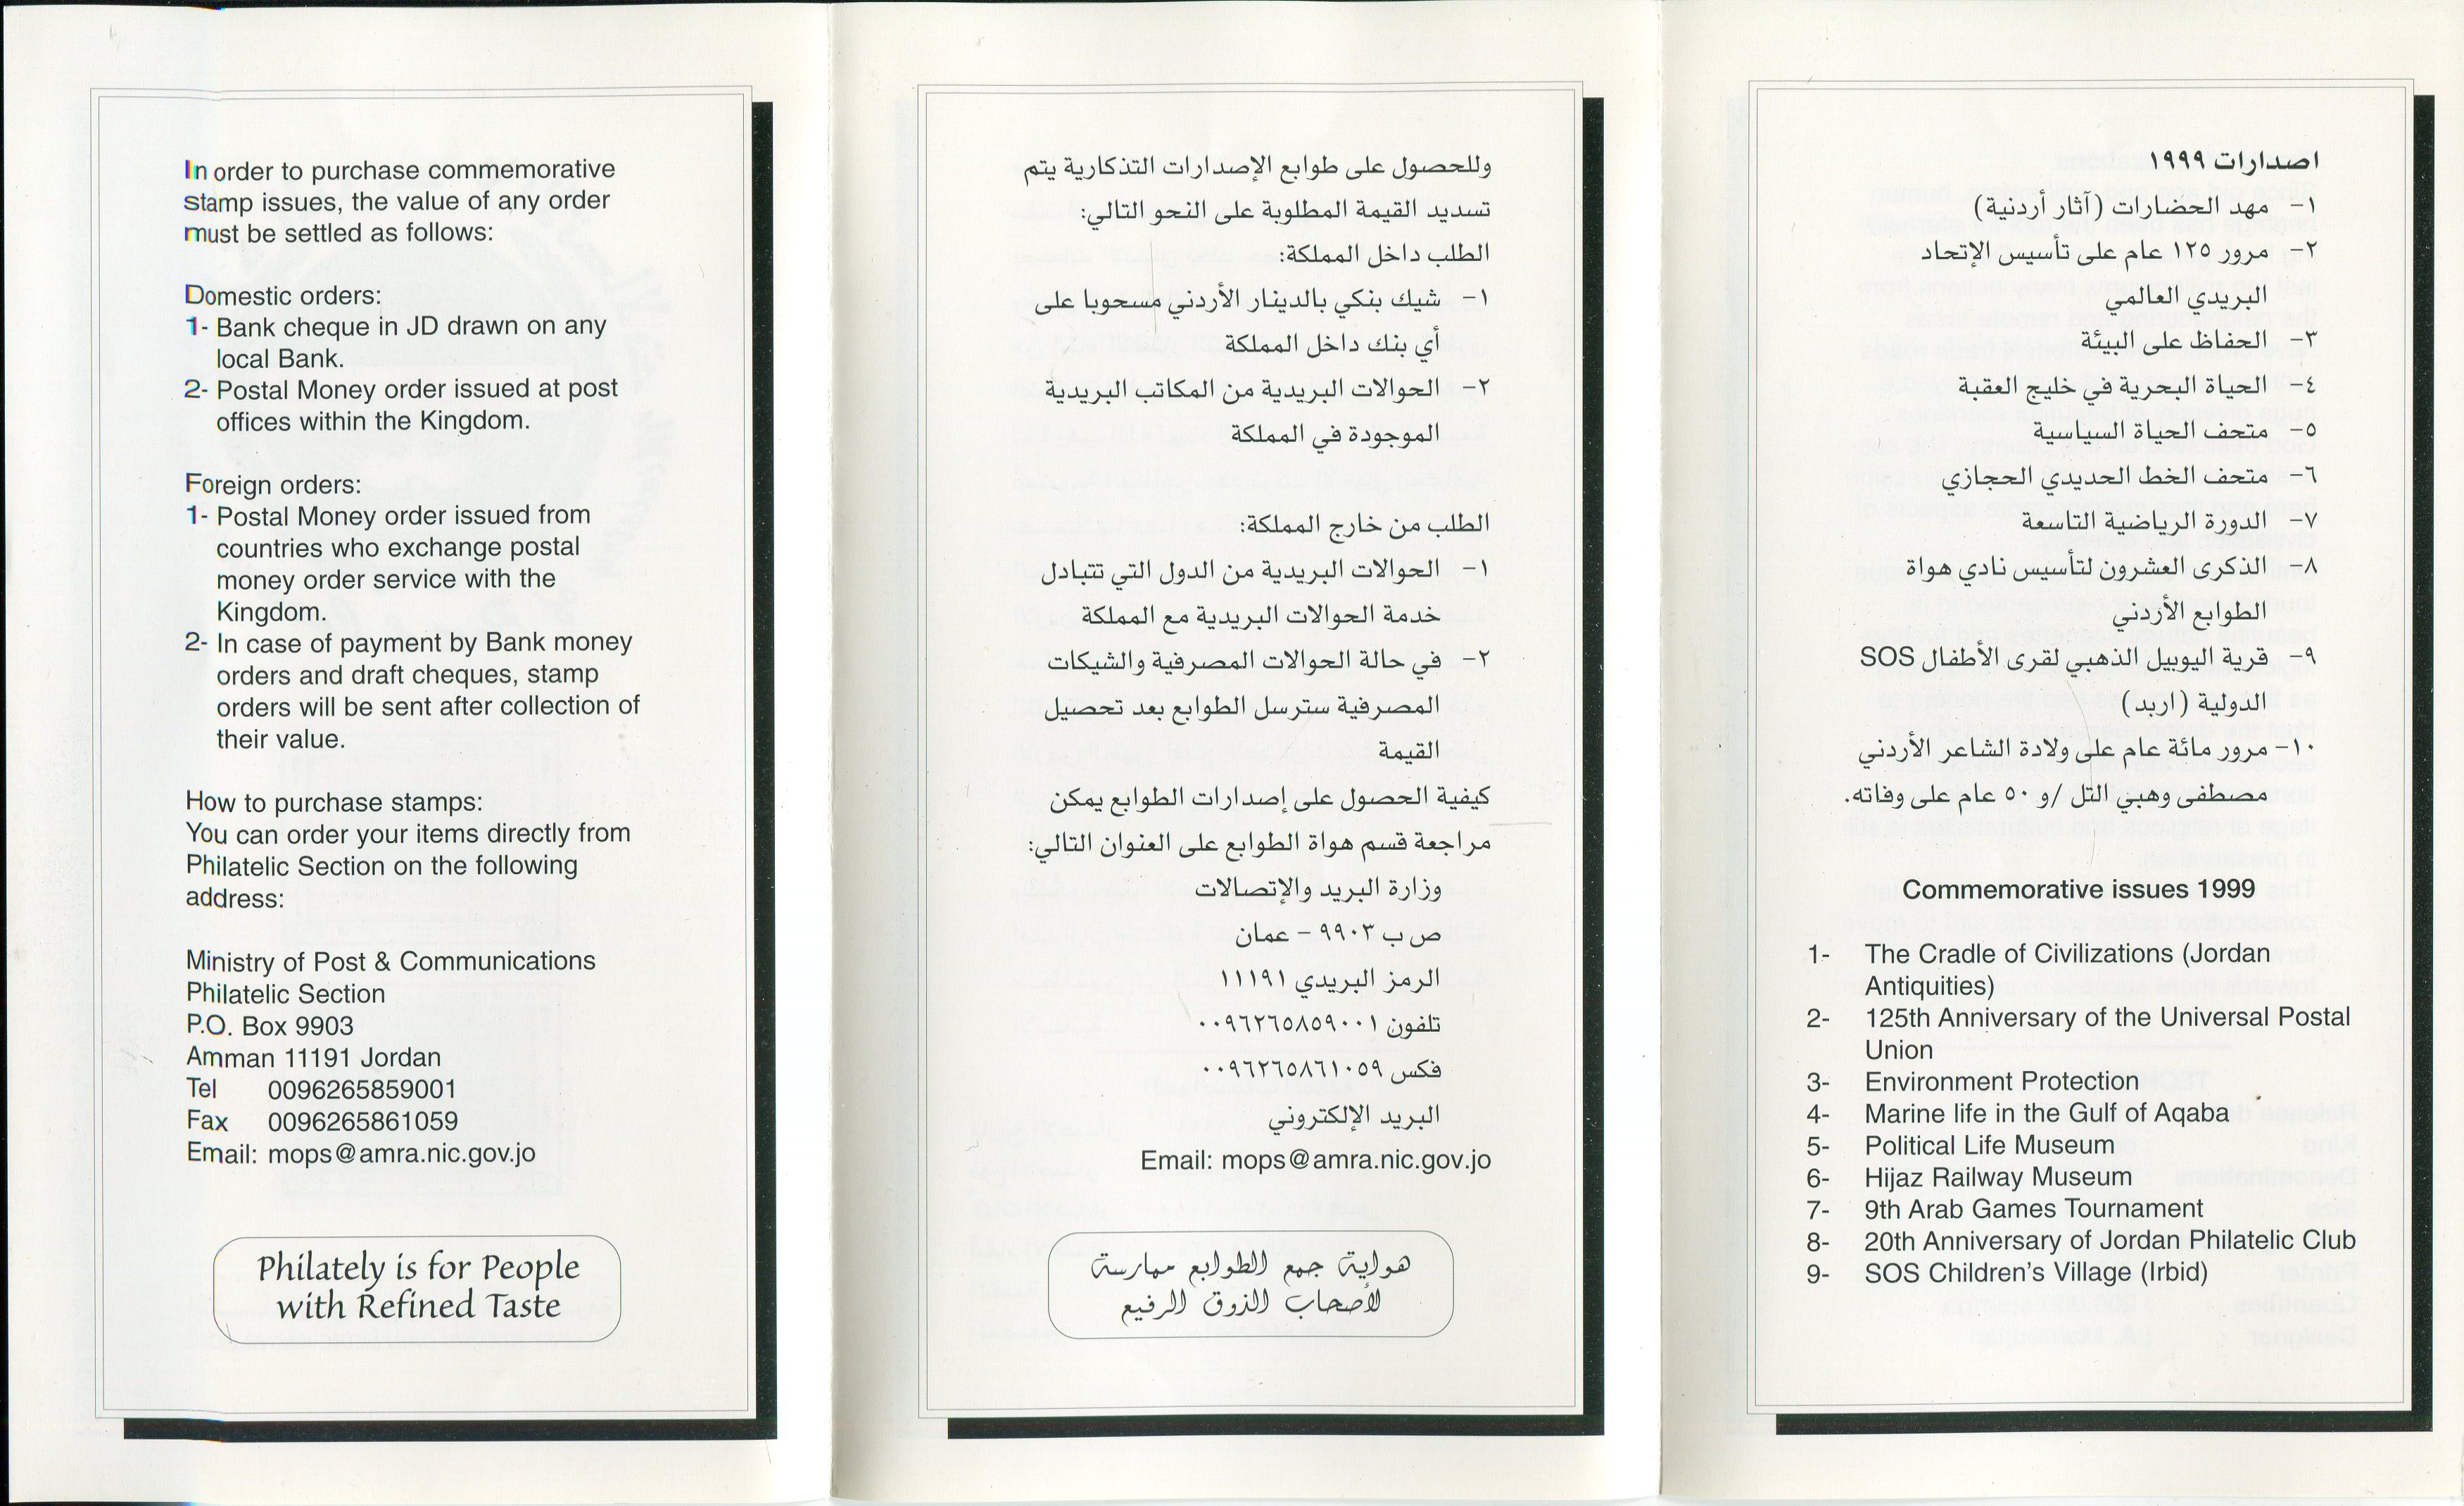 In order to purchase commemorative
stamp issues, the value of any order
must be settled as follows:
Domestic orders:
1- Bank cheque in JD drawn on any
local Bank.
2- Postal Money order issued at post
offices within the Kingdom.
Foreign orders:
1- Postal Money order issued from
countries who exchange postal
money order service with the
Kingdom.
2- In case of payment by Bank money
orders and draft cheques, stamp
orders will be sent after collection of
their value.
How to purchase stamps:
You can order your items directly from
Philatelic Section on the following
address:
Ministry of Post & Communications
Philatelic Section
P.O. Box 9903
Amman 11191 Jordan
Tel 0096265859001
Fax 0096265861059
Email: mops@amra.nic.gov.jo
Philately is for People
with Refined Taste
وللحصول على طوابع الإصدارات التذكارية يتم
تسديد القيمة المطلوبة على النحو التالي:
الطلب داخل المملكة:
١- شيك بنكي بالدينار الأردني مسحوبا على
أي بنك داخل المملكة
٢- الحوالات البريدية من المكاتب البريدية
الموجودة في المملكة
الطلب من خارج المملكة:
١- الحوالات البريدية من الدول التي تتبادل
خدمة الحوالات البريدية مع المملكة
٢- في حالة الحوالات المصرفية والشيكات
المصرفية سترسل الطوابع بعد تحصيل
القيمة
كيفية الحصول على إصدارات الطوابع يمكن
مراجعة قسم هواة الطوابع على العنوان التالي:
وزارة البريد والإتصالات
ص ب ٩٩٠٣ - عمان
الرمز البريدي ١١١٩١
تلفون ٠٠٩٦٢٦٥٨٥٩٠٠١
فكس ٠٠٩٦٢٦٥٨٦١٠٥٩
البريد الإلكتروني
Email: mops@amra.nic.gov.jo
هواية جمع الطوابع ممارسة
لأصحاب الذوق الرفيع
اصدارات ١٩٩٩
١- مهد الحضارات (آثار أردنية)
٢- مرور ١٢٥ عام على تأسيس الإتحاد
البريدي العالمي
٣- الحفاظ على البيئة
٤- الحياة البحرية في خليج العقبة
٥- متحف الحياة السياسية
٦- متحف الخط الحديدي الحجازي
٧- الدورة الرياضية التاسعة
٨- الذكرى العشرون لتأسيس نادي هواة
الطوابع الأردني
٩- قرية اليوبيل الذهبي لقرى الأطفال SOS
الدولية (اربد)
١٠- مرور مائة عام على ولادة الشاعر الأردني
مصطفى وهبي التل /و ٥٠ عام على وفاته.
Commemorative issues 1999
1- The Cradle of Civilizations (Jordan
Antiquities)
2- 125th Anniversary of the Universal Postal
Union
3- Environment Protection
4- Marine life in the Gulf of Aqaba
5- Political Life Museum
6- Hijaz Railway Museum
7- 9th Arab Games Tournament
8- 20th Anniversary of Jordan Philatelic Club
9- SOS Children's Village (Irbid)